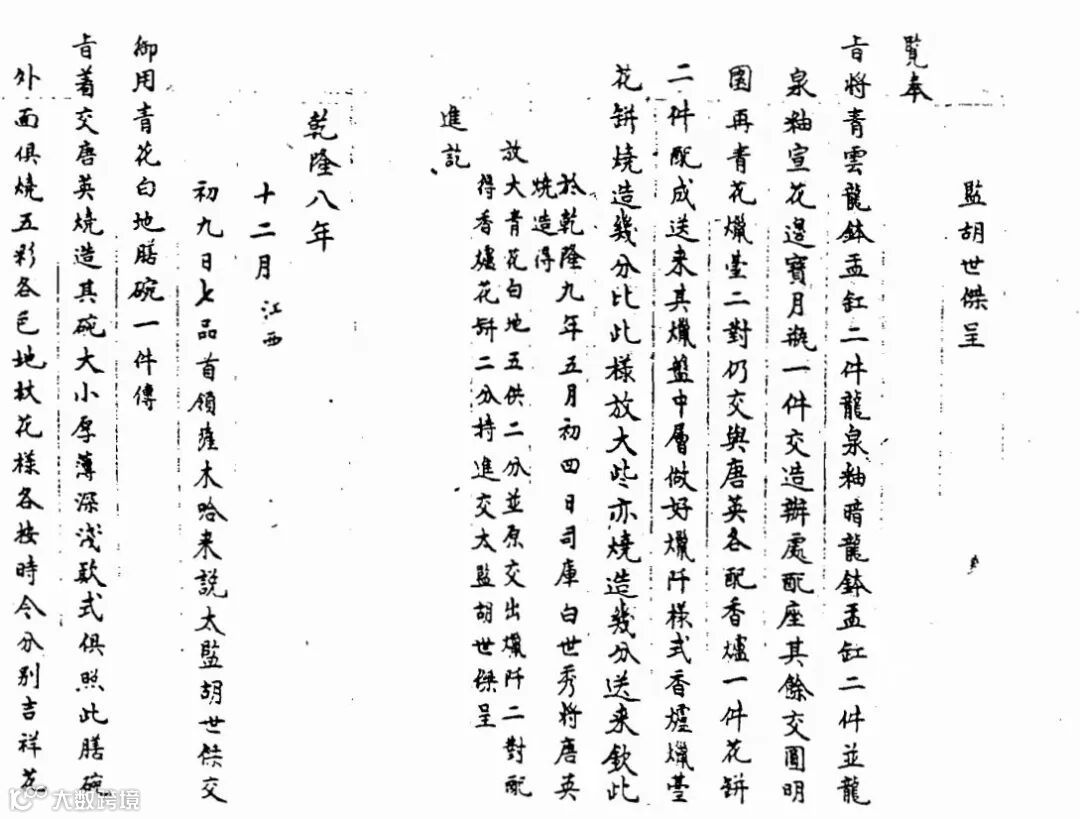 監胡世傑呈
覽奉
旨將青雲龍鉢盂缸二件龍泉釉暗龍鉢盂缸二件並龍
泉釉宣花邊寶月瓶一件交造辦處配座其餘交圓明
園再青花爉臺二對仍交與唐英各配香爐一件花缾
二件配成送来其爉盤中層做好爉阡樣式香爐爉臺
花缾燒造幾分比此樣放大些亦燒造幾分送来欽此
於乾隆九年五月初四日司庫白世秀將唐英
燒造得
放大青花白地五供二分並原交出爉阡二對配
得香爐花缾二分持進交太監胡世傑呈
進訖
乾隆八年
十二月 江西
初九日七品首領薩木哈来說太監胡世傑交
御用青花白地膳碗一件傳
旨着交唐英燒造其碗大小厚薄深淺款式俱照此膳碗
外面俱燒五彩各色地杖花樣各按時令分別吉祥花
大数跨境